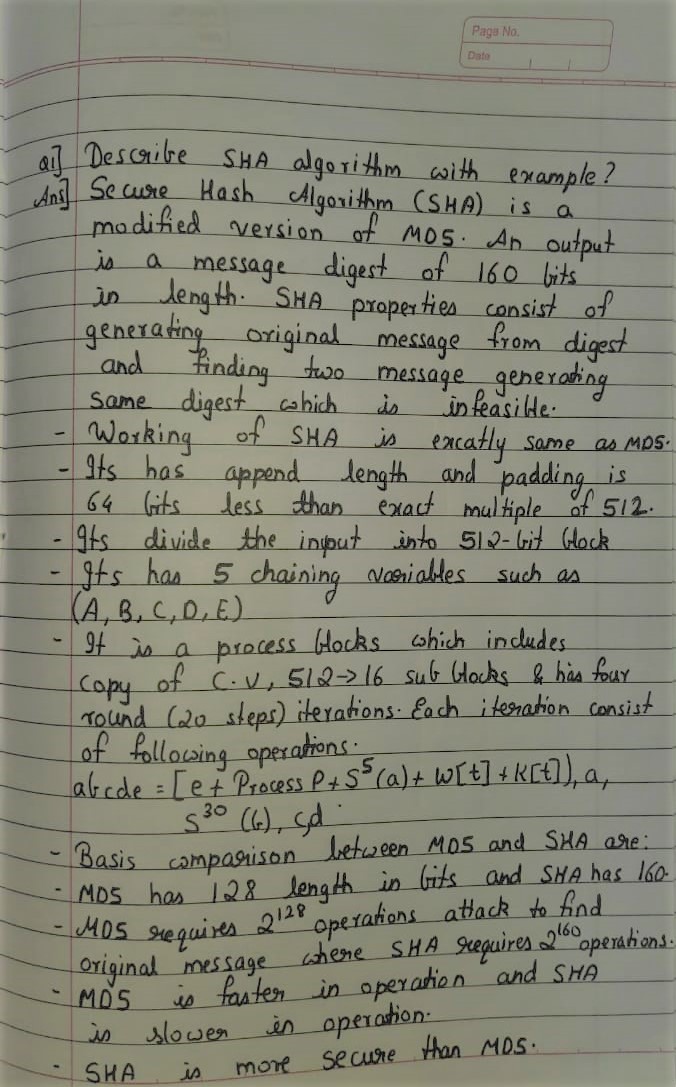 Page No.
Date
Q1] Describe SHA algorithm with example?
Ans] Secure Hash Algorithm (SHA) is a
modified version of MD5. An output
is a message digest of 160 bits
in length. SHA properties consist of
generating original message from digest
and finding two message generating
same digest which is infeasible.
- Working of SHA is excatly same as MD5.
- Its has append length and padding is
64 bits less than exact multiple of 512.
- Its divide the input into 512-bit block
- Its has 5 chaining variables such as
(A, B, C, D, E)
- It is a process blocks which includes
copy of C.V, 512→16 sub blocks & has four
round (20 steps) iterations. Each iteration consist
of following operations.
abcde = [e + Process P + S⁵(a) + W[t] + K[t]), a,
S³⁰ (b), c,d.
- Basis comparison between MD5 and SHA are:
- MD5 has 128 length in bits and SHA has 160.
- MD5 requires 2¹²⁸ operations attack to find
original message where SHA requires 2¹⁶⁰ operations.
- MD5 is faster in operation and SHA
is slower in operation.
- SHA is more secure than MD5.